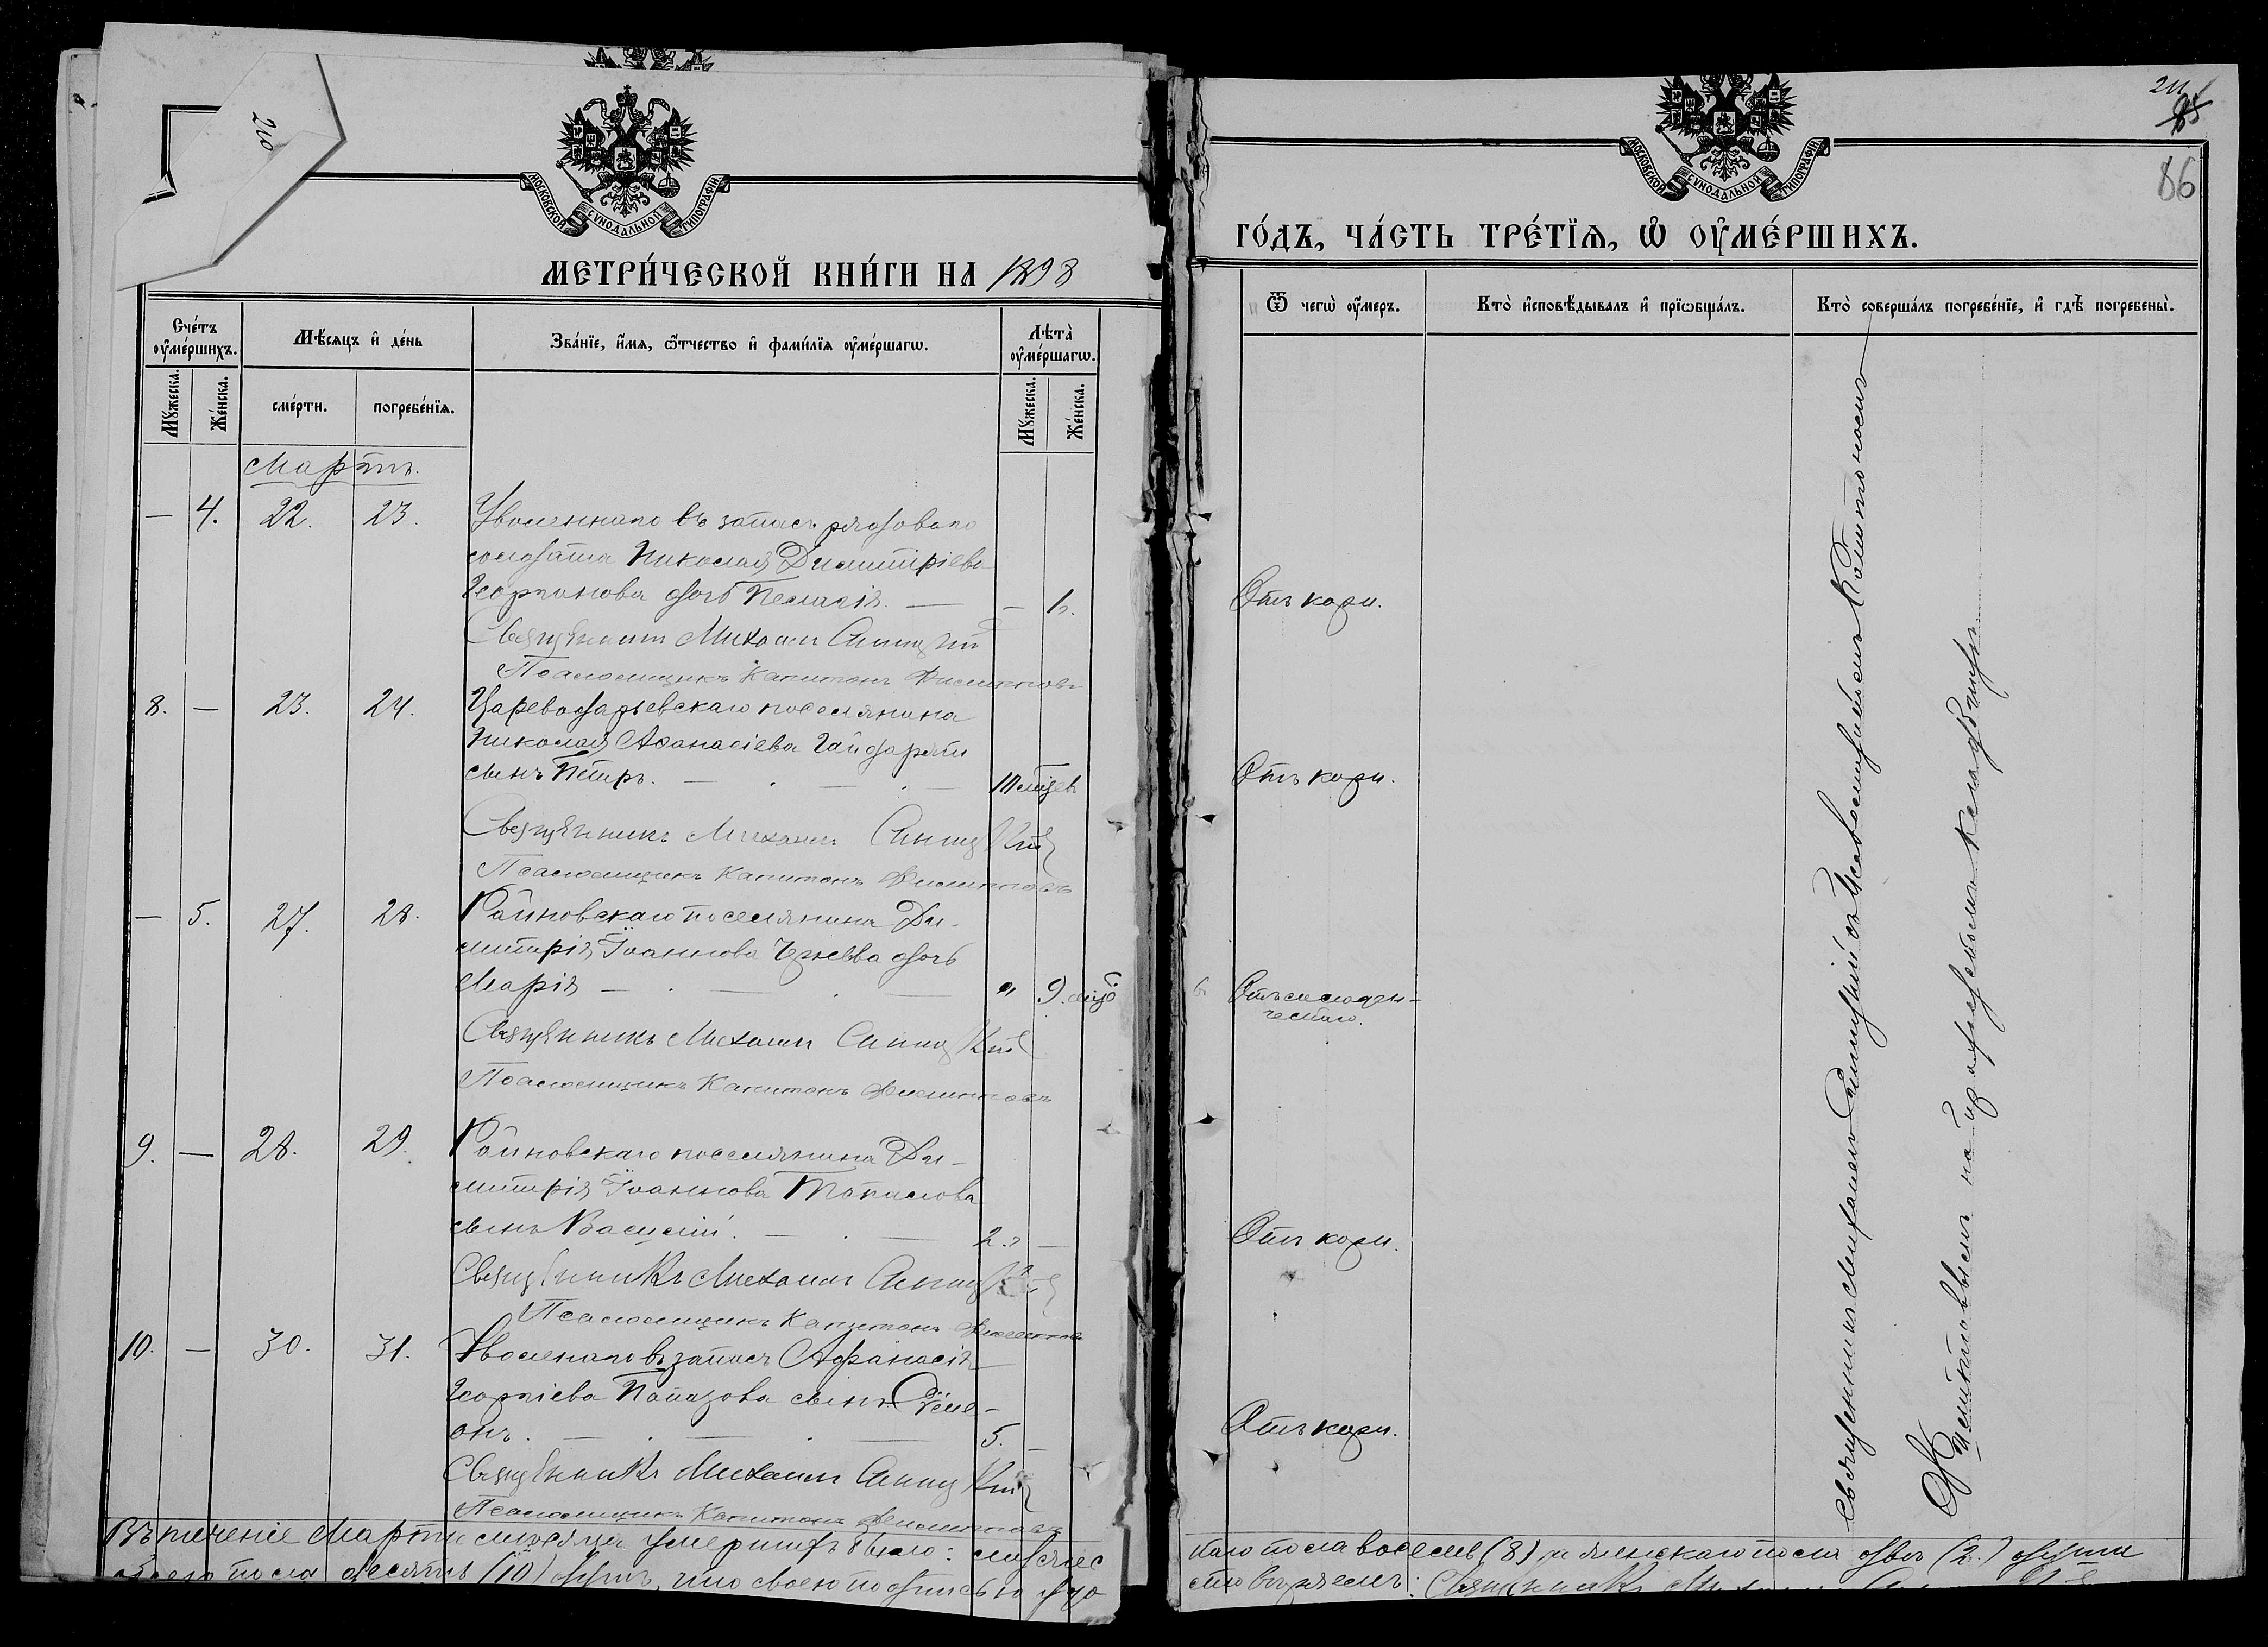 210
МОСКОВСКОЙ СѴНОДАЛЬНОЙ ТИПОГРАФІИ
МЕТРИ́ЧЕСКОЙ КНИ́ГИ НА 1898
Сче́тъ оу҆ме́ршихъ.
Мꙋ́жеска.
Же́нска.
Мѣ́сяцъ и҆ де́нь
сме́рти.
погребе́нїя.
Зва́нїе, и҆́мя, ѻ҆́тчество и҆ фами́лїя оу҆ме́ршагѡ.
Лѣта̀ оу҆ме́ршагѡ.
Мꙋ́жеска.
Же́нска.
Мартъ.
— 4. 22. 23. Уволеннаго въ запасъ рядового
солдата Николая Димитріева
Георгіева дочь Пелагія. — — 1.
Священникъ Михаилъ
Псаломщикъ Капитонъ Филипповъ
8. — 23. 24. Цареводарьевскаго поселянина
Николая Аѳанасіева Гайдаржи
сынъ Петръ. — . — . —
Священникъ Михаилъ
Псаломщикъ Капитонъ Филипповъ
— 5. 27. 28. Раиновскаго поселянина Ди-
митрія Іоаннова дочь
Марія — . — . — „ 9.
Священникъ Михаилъ
Псаломщикъ Капитонъ Филипповъ
9. — 28. 29. Раиновскаго поселянина Ди-
митрія Іоаннова Топалова
сынъ Василій. — . — 2. —
Священникъ Михаилъ
Псаломщикъ Капитонъ Филипповъ
10. — 30. 31. Уволенаго въ запасъ Афанасія
Георгіева Папазова сынъ Сѵме-
онъ. — . — . — 5. —
Священникъ Михаилъ
Псаломщикъ Капитонъ Филипповъ
Въ теченіе Марта мѣсяца умершихъ было: мужес
пола десять (10) душъ, что своею подписью удо
211
85
86
МОСКОВСКОЙ СѴНОДАЛЬНОЙ ТИПОГРАФІИ
ГО́ДЪ, ЧА́СТЬ ТРЕ́ТЇѦ, Ѡ҆ ОУ҆МЕ́РШИХЪ.
Ѿ чегѡ̀ оу҆́меръ.
Кто̀ и҆сповѣ́дывалъ и҆ прїѡбща́лъ.
Кто̀ соверша́лъ погребе́нїе, и҆ гдѣ̀ погребены̀.
Отъ кори.
Отъ кори.
Отъ
Отъ кори.
Отъ кори.
Священникъ Михаилъ съ Псаломщикомъ Капитономъ
Филипповымъ на приходскомъ кладбищѣ.
каго пола восемь (8) и женскаго пола двѣ (2.) души
стовѣряемъ: Священникъ